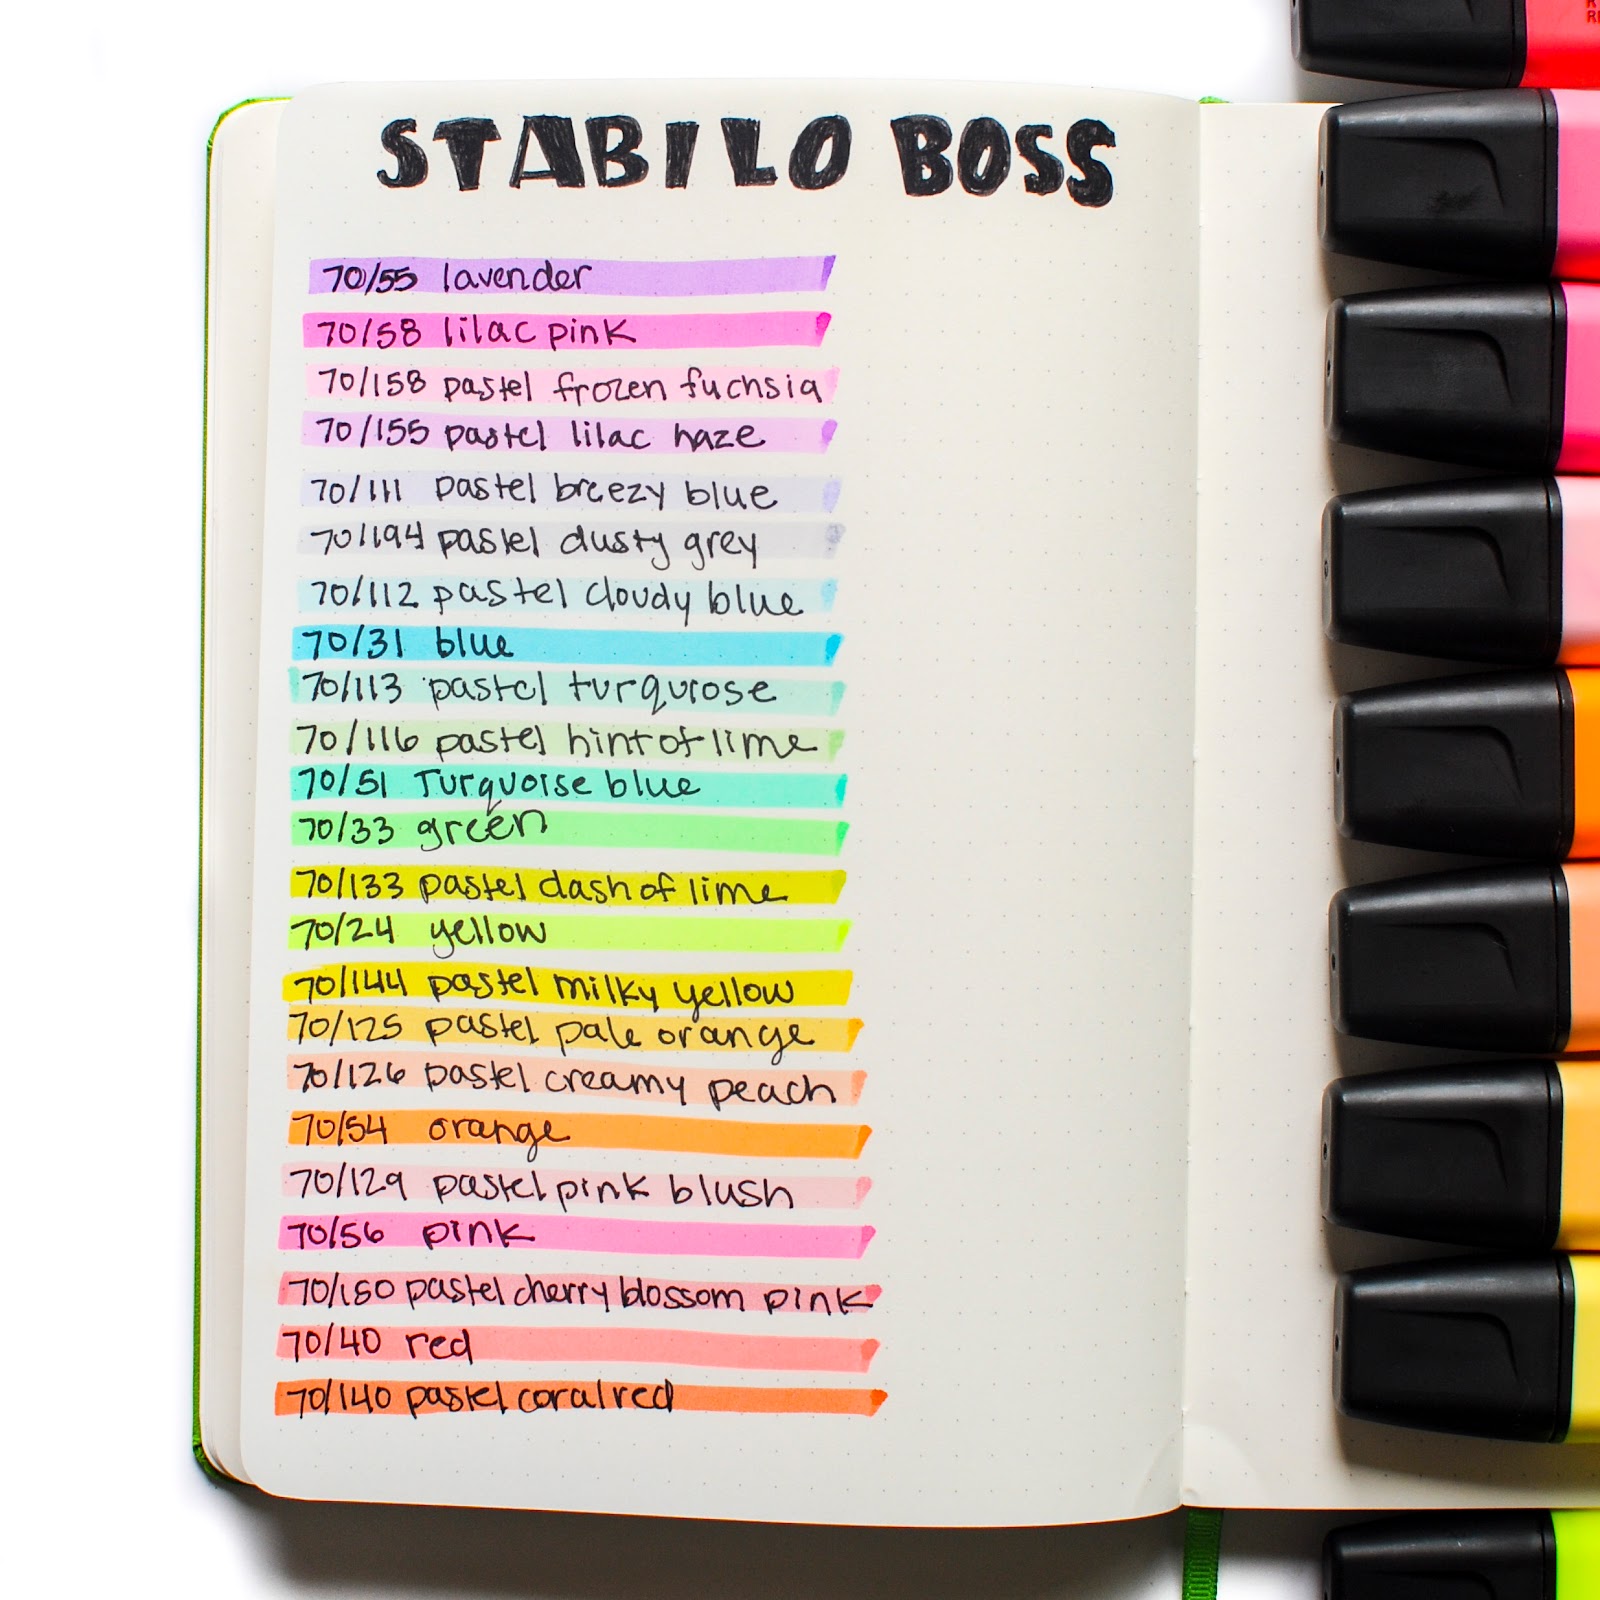 STABILO BOSS
70/55 lavender
70/58 lilac pink
70/158 pastel frozen fuchsia
70/155 pastel lilac haze
70/111 pastel breezy blue
70/194 pastel dusty grey
70/112 pastel cloudy blue
70/31 blue
70/113 pastel turquoise
70/116 pastel hint of lime
70/51 Turquoise blue
70/33 green
70/133 pastel dash of lime
70/24 yellow
70/144 pastel milky yellow
70/125 pastel pale orange
70/126 pastel creamy peach
70/54 orange
70/129 pastel pink blush
70/56 pink
70/150 pastel cherry blossom pink
70/40 red
70/140 pastel coral red